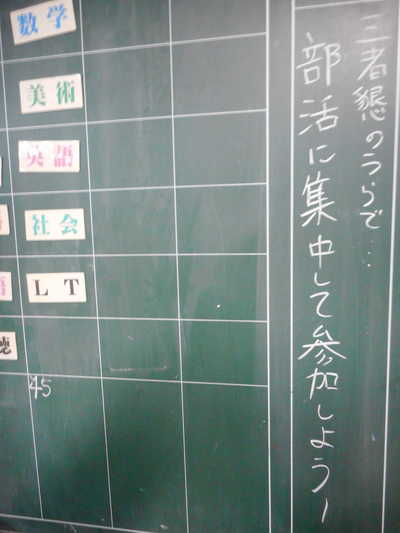 三者懇のうらで…
部活に集中して参加しようー
数学
美術
英語
社会
LT
聴
45